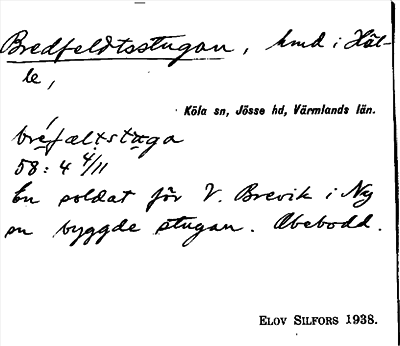 Bredfeldtsstugan, hmd i Häl-
le,
Köla sn, Jösse hd, Värmlands län.
bréfæltstuga
58:4 4/11
En soldat för V. Brevik i Ny
sn byggde stugan. Obebodd.
ELOV SILFORS 1938.